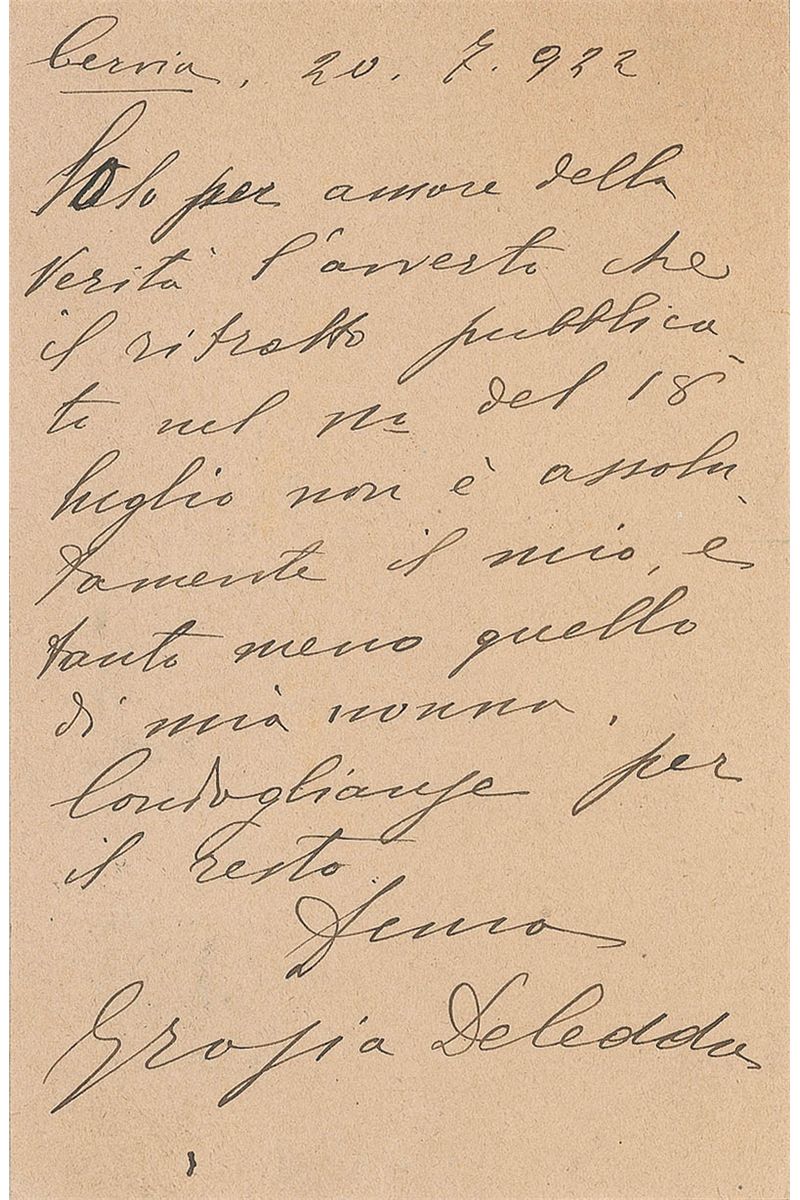 Cervia, 20. 7. 922
Solo per amore della
Verità l'avverto che
il ritratto pubblica-
to nel No del 18
luglio non è assolu-
tamente il mio, e
tanto meno quello
di mia nonna.
Condoglianze per
il resto.
Grazia Deledda